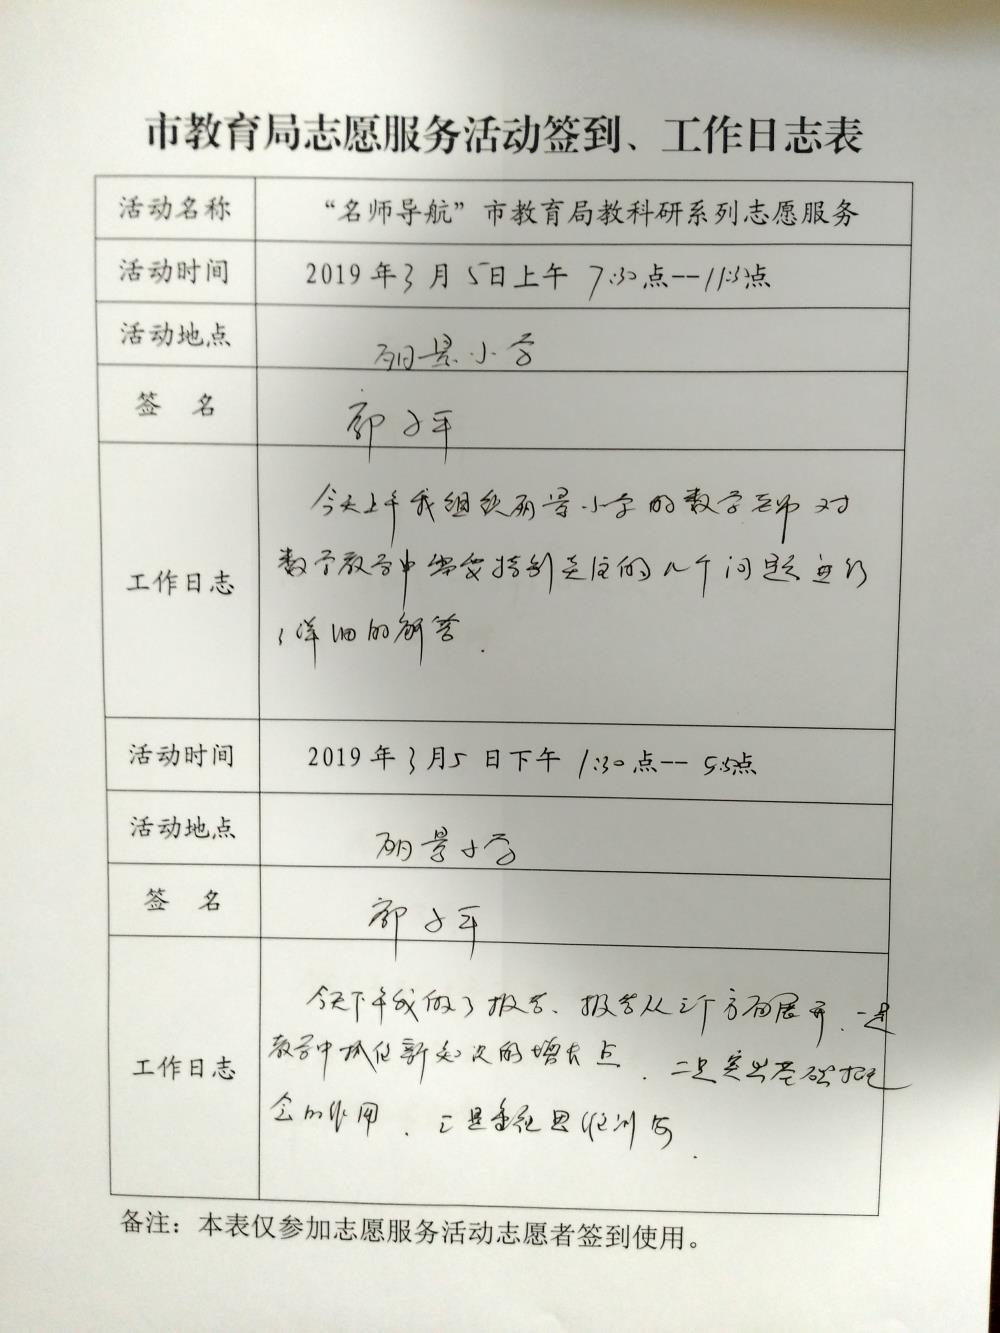 市教育局志愿服务活动签到、工作日志表
活动名称 “名师导航”市教育局教科研系列志愿服务
活动时间 2019年3月5日上午7:30点--11:30点
活动地点 丽景小学
签 名 郭子平
今天上午我组织丽景小学的数学老师对
数学教学中需要特别关注的几个问题进行
工作日志
了详细的解答.
活动时间 2019年3月5日下午1:30点--5:5点
活动地点 丽景小学
签 名 郭子平
今天下午我做了报告、报告从三个方面展开、一是
教学中抓住新知识的增长点、二是突出基础概
工作日志
念的作用、三是重视思维训练.
备注：本表仅参加志愿服务活动志愿者签到使用。